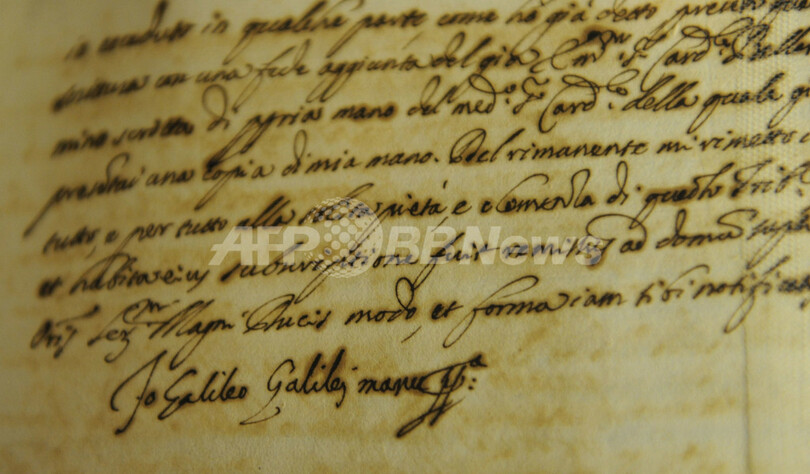 in voce dato in qualche parte come ho già detto
scrittura con una fede aggiunta del già Em.mo S.r Card.e Bella
mino scritta di apria mano del med.o S.r Card.e della quale
presentai una copia di mia mano. Del rimanente mi rimetto
tutto, e per tutto alla solita pietà, e clemenza di questo Trib.
et habita eius subscriptione fuit remissus ad domum
Oris Ser.mi Magni Ducis modo, et forma iam sibi notificat
Io Galileo Galilej manu pp.a:
AFP BBNews